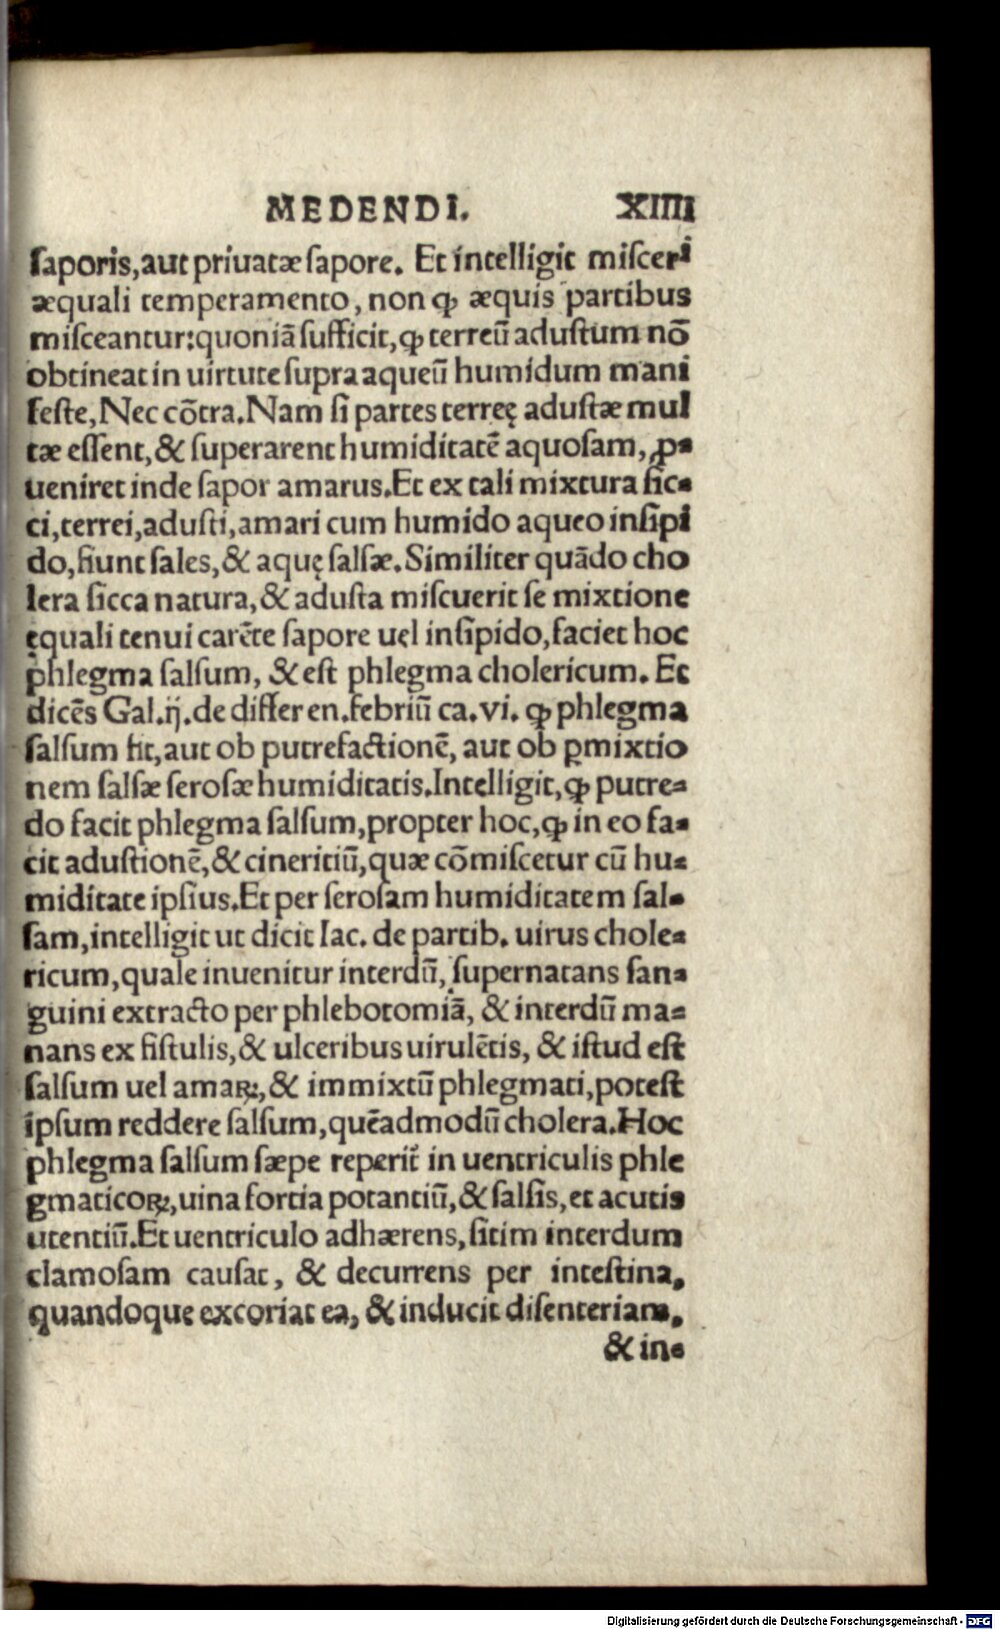 MEDENDI. XIIII
saporis, aut priuatæ sapore. Et intelligit misceri
æquali temperamento, non ꝙ æquis partibus
misceantur: quoniā sufficit, ꝙ terreū adustum nō
obtineat in uirtute supra aqueū humidum mani
feste, Nec cōtra. Nam si partes terreę adustæ mul
tæ essent, & superarent humiditatē aquosam, ꝓ-
ueniret inde sapor amarus. Et ex tali mixtura sic-
ci, terrei, adusti, amari cum humido aqueo insipi
do, fiunt sales, & aquę salsæ. Similiter quādo cho
lera sicca natura, & adusta miscuerit se mixtione
ęquali tenui carēte sapore uel insipido, faciet hoc
phlegma salsum, & est phlegma cholericum. Et
dicēs Gal. ij. de differen. febriū ca. vi. ꝙ phlegma
salsum fit, aut ob putrefactionē, aut ob ꝑmixtio
nem salsæ serosæ humiditatis. Intelligit, ꝙ putre-
do facit phlegma salsum, propter hoc, ꝙ in eo fa-
cit adustionē, & cineritiū, quæ cōmiscetur cū hu-
miditate ipsius. Et per serosam humiditatem sal-
sam, intelligit ut dicit Iac. de partib. uirus chole-
ricum, quale inuenitur interdū, supernatans san-
guini extracto per phlebotomiā, & interdū ma-
nans ex fistulis, & ulceribus uirulētis, & istud est
salsum uel amaꝝ, & immixtū phlegmati, potest
ipsum reddere salsum, quēadmodū cholera. Hoc
phlegma salsum sæpe reperit̃ in uentriculis phle
gmaticoꝝ, uina fortia potantiū, & salsis, et acutis
utentiū. Et uentriculo adhærens, sitim interdum
clamosam causat, & decurrens per intestina,
quandoque excoriat ea, & inducit disenteriam,
& in-
Digitalisierung gefördert durch die Deutsche Forschungsgemeinschaft - DFG